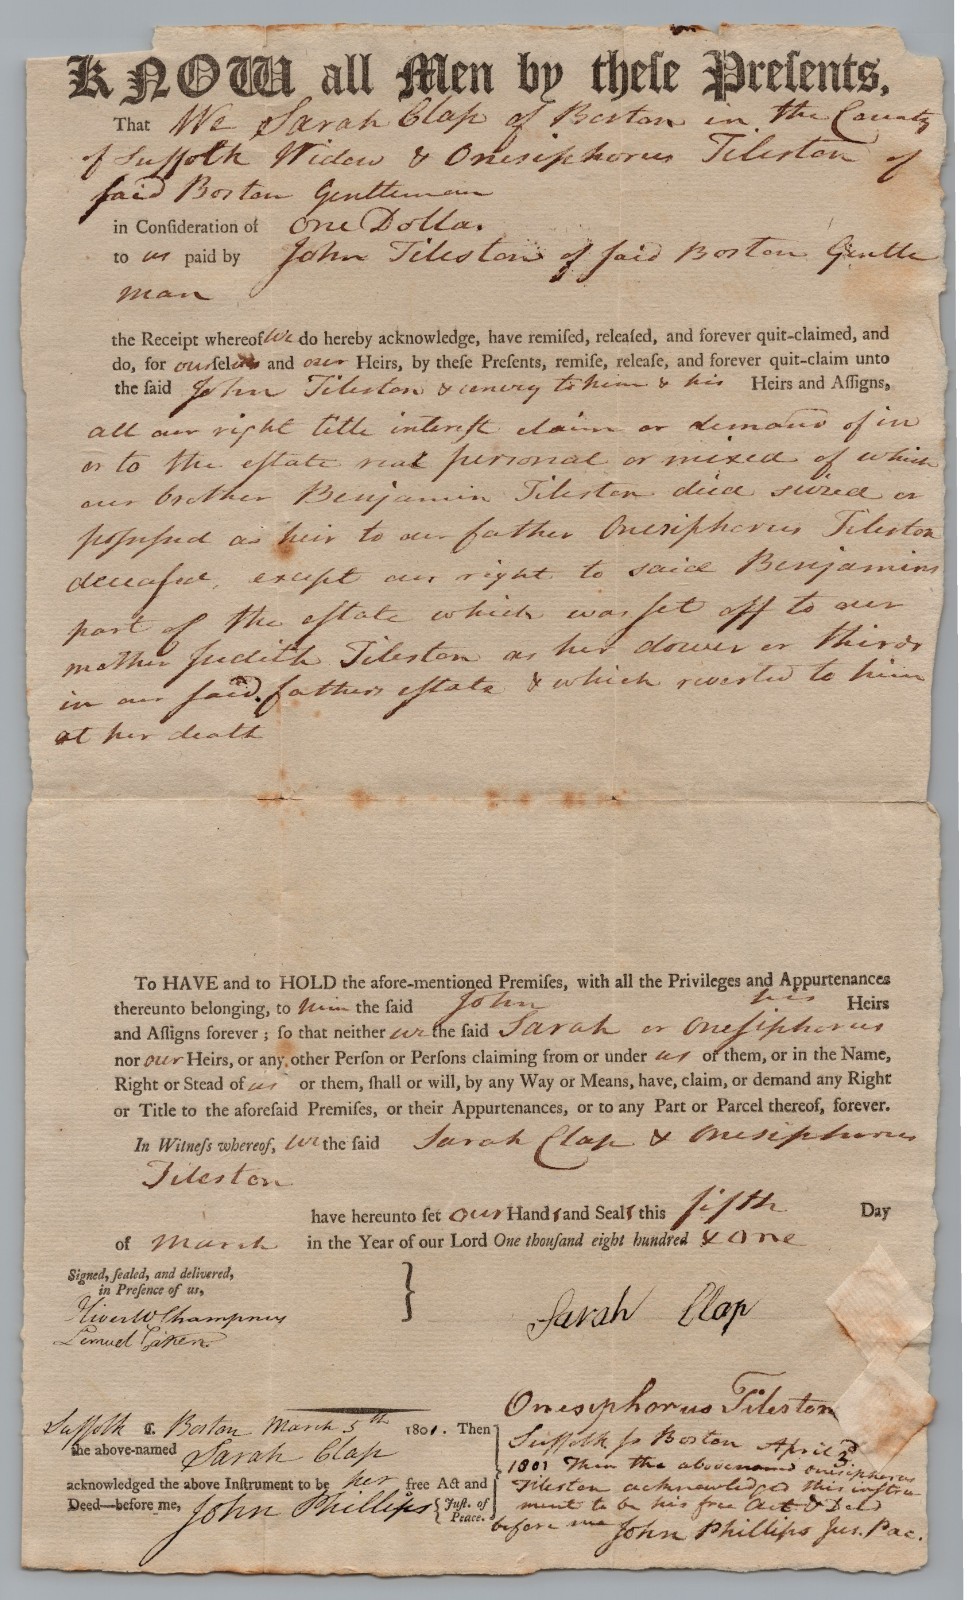 KNOW all Men by theſe Preſents,
That We Sarah Clap of Boston in the County
of Suffolk Widow & Onesiphorus Tileston of
ſaid Boston Gentleman
in Conſideration of one Dolla.
to us paid by John Tileston of ſaid Boston Gentle
man
the Receipt whereof We do hereby acknowledge, have remiſed, releaſed, and forever quit-claimed, and
do, for ourſelves and our Heirs, by theſe Preſents, remiſe, releaſe, and forever quit-claim unto
the ſaid John Tileston & convey to him & his Heirs and Aſſigns,
all our right title intereſt claim or demand of in
or to the eſtate real personal or mixed of which
our brother Benjamin Tileston died seized or
poſseſsed as heir to our father Onesiphorus Tileston
deceaſed, except our right to said Benjamins
part of the eſtate which was ſet off to our
mother Judith Tileston as her dower or thirds
in our ſaid fathers eſtate & which reverted to him
at her death
To HAVE and to HOLD the afore-mentioned Premiſes, with all the Privileges and Appurtenances
thereunto belonging, to him the ſaid John his Heirs
and Aſſigns forever ; ſo that neither we the ſaid Sarah or Oneſiphorus
nor our Heirs, or any other Perſon or Perſons claiming from or under us or them, or in the Name,
Right or Stead of us or them, ſhall or will, by any Way or Means, have, claim, or demand any Right
or Title to the aforeſaid Premiſes, or their Appurtenances, or to any Part or Parcel thereof, forever.
In Witneſs whereof, We the ſaid Sarah Clap & Onesiphorus
Tileston
have hereunto ſet our Hands and Seals this fifth Day
of March in the Year of our Lord One thouſand eight hundred & one
Signed, ſealed, and delivered,
in Preſence of us,
Champney
Lemuel
Sarah Clap
Onesiphorus Tileston
Suffolk ſſ. Boston March 5th 1801. Then
the above-named Sarah Clap
acknowledged the above Inſtrument to be her free Act and
Deed—before me, John Phillips { Juſt. of Peace.
Suffolk ſs Boston April 3d
1801 Then the abovenamed onesiphorus
Tileston acknowledged this instru
ment to be his free Act & Deed
before me John Phillips Jus. Pac.